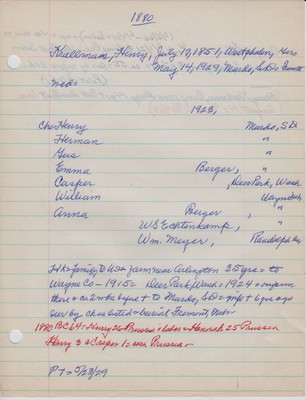 1880
Krallman, Henry, July 17, 1851, Westphalen, Ger=
May 14, 1929, Marks, S.D=
ned=
1928,
Ch= Henry Marks, S.D
Herman "
Gus "
Emma Berger, "
Casper , Deer Park, Wash
William , Wayne
Anna Berger "
W S Echtenkamp, "
Wm. Meyer, Randolph
H K = family to USA = farm near Arlington 35 yrs = to
Wayne Co - 1915 = Deer Park, Wash = 1924 =
there = c 2 mks before to Marks, S.D = 6 yrs ago
sur by chas listed = burial Fremont, Nebr
1880 BC 64 = Henry 26 Prussia = labor = Hannah 25 Prussia
Henry 3 & Casper 1 = Prussia
P 7 = 5/23/29